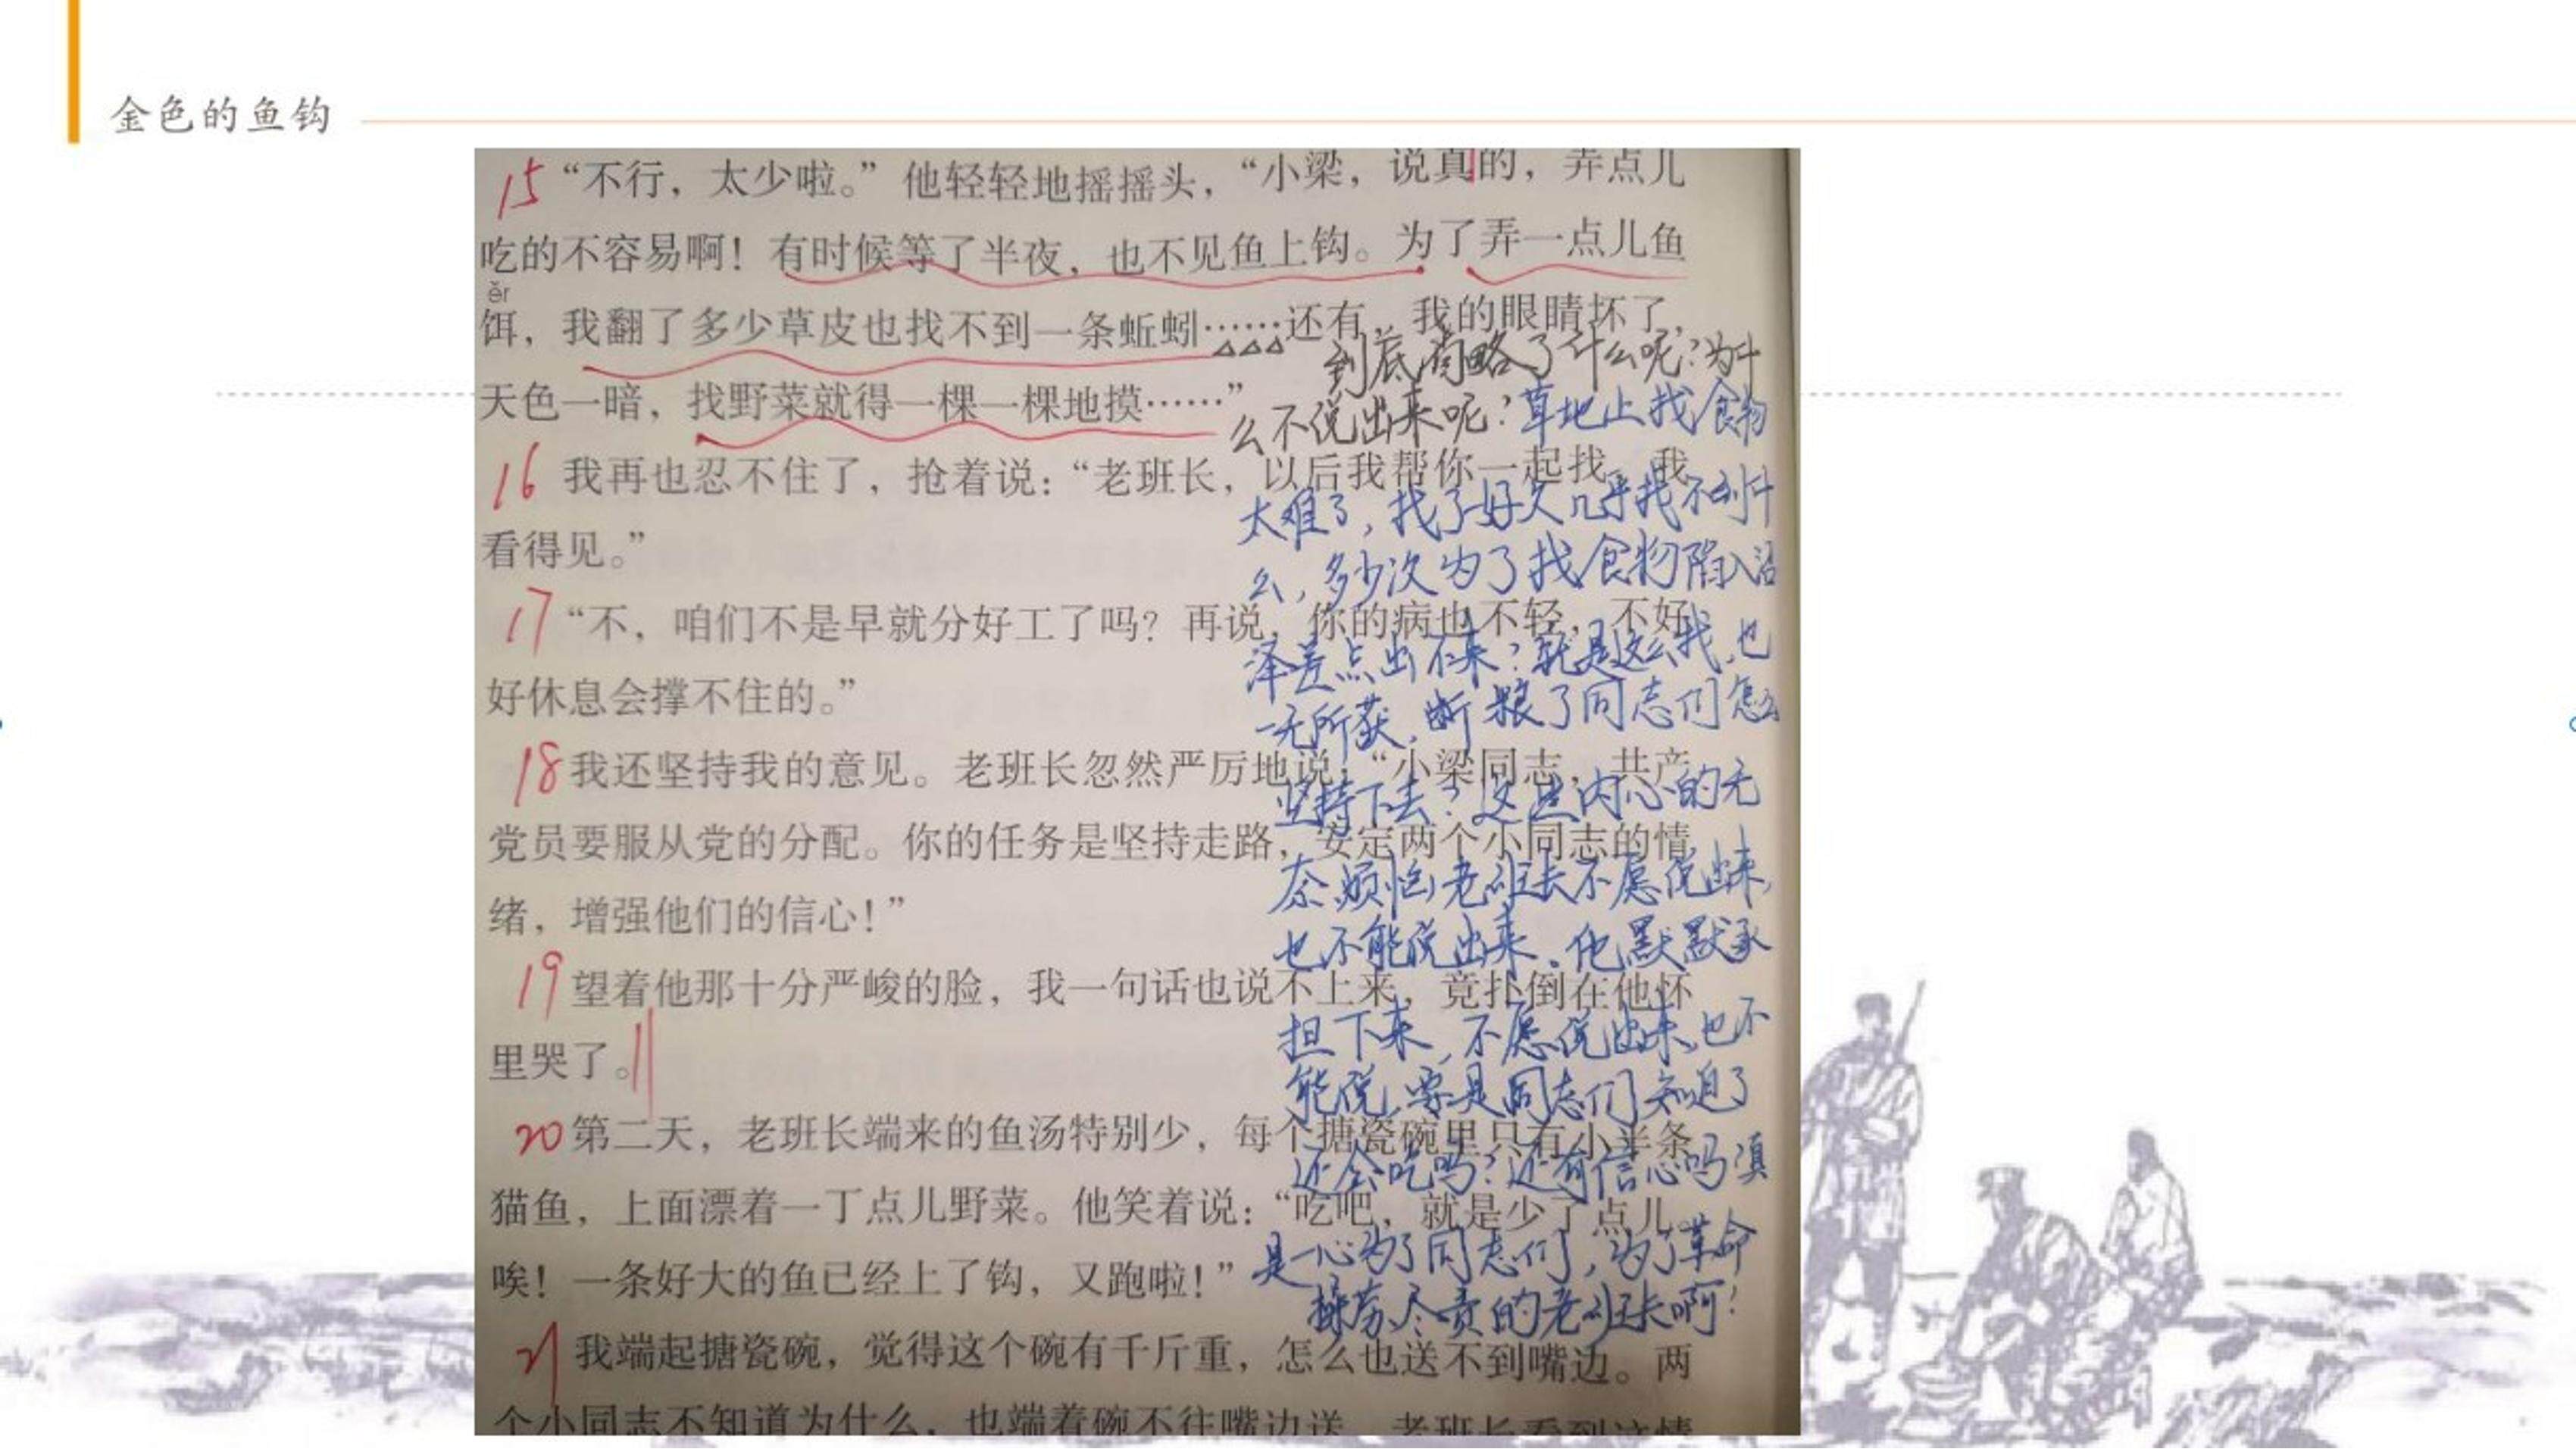 金色的鱼钩
15 “不行，太少啦。”他轻轻地摇摇头，“小梁，说真的，弄点儿
吃的不容易啊！有时候等了半夜，也不见鱼上钩。为了弄一点儿鱼
ěr
饵，我翻了多少草皮也找不到一条蚯蚓……还有，我的眼睛坏了，
到底省略了什么呢？为什
天色一暗，找野菜就得一棵一棵地摸……”
么不说出来呢？草地上找食物
16 我再也忍不住了，抢着说：“老班长，以后我帮你一起找，我
太难了，找了好久几乎找不到什
看得见。”
么，多少次为了找食物陷入沼
17 “不，咱们不是早就分好工了吗？再说，你的病也不轻，不好
泽差点出不来？就是这么找，也
好休息会撑不住的。”
一无所获，断粮了同志们怎么
18 我还坚持我的意见。老班长忽然严厉地说：“小梁同志，共产
坚持下去？这些内心的无
党员要服从党的分配。你的任务是坚持走路，安定两个小同志的情
奈、烦恼老班长不愿说出来，
绪，增强他们的信心！”
也不能说出来。他默默承
19 望着他那十分严峻的脸，我一句话也说不上来，竟扑倒在他怀
担下来，不愿说出来，也不
里哭了。
能说，要是同志们知道了
20 第二天，老班长端来的鱼汤特别少，每个搪瓷碗里只有小半条
还会吃吗？还有信心吗？真
猫鱼，上面漂着一丁点儿野菜。他笑着说：“吃吧，就是少了点儿。
是一心为了同志们，为了革命
唉！一条好大的鱼已经上了钩，又跑啦！”
操劳、尽责的老班长啊！
21 我端起搪瓷碗，觉得这个碗有千斤重，怎么也送不到嘴边。两
个小同志不知道为什么，也端着碗不往嘴边送。老班长看到这情